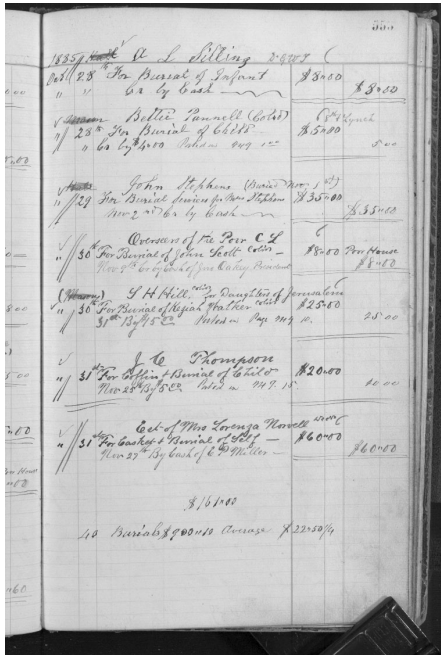 1885 A L Silling
Oct 28th For Burial of Infant $8=00
" " Cr by Cash $8=00
Bettie Pannell (Cold) 8th & Lynch
28th For Burial of Child $5=00
" Cr by $4=00 Posted on 949 5=00
John Stephens (Buried Nov 1st)
29 For Burial Services for Mrs Stephens $35=00
Nov 2nd Cr by Cash $35=00
Overseers of the Poor C L
30th For Burial of John Scott Cold $8=00 Poor House
Nov 9th Cr by Cash of Jno Oakey President $8=00
S H Hill Cold for Daughters of Jerusalem
30th For Burial of Keziah Walker Cold $25=00
31st By Posted on Page 949 25=00
J C Thompson
31st For Coffin & Burial of Child $20=00
Nov 25th By Posted on 949
Est of Mrs Lorenza Norvell
31st For Casket & Burial of Self $60=00
Nov 27th By Cash of Miller $60=00
$161=00
40 Burials $900=10 Average $22=50